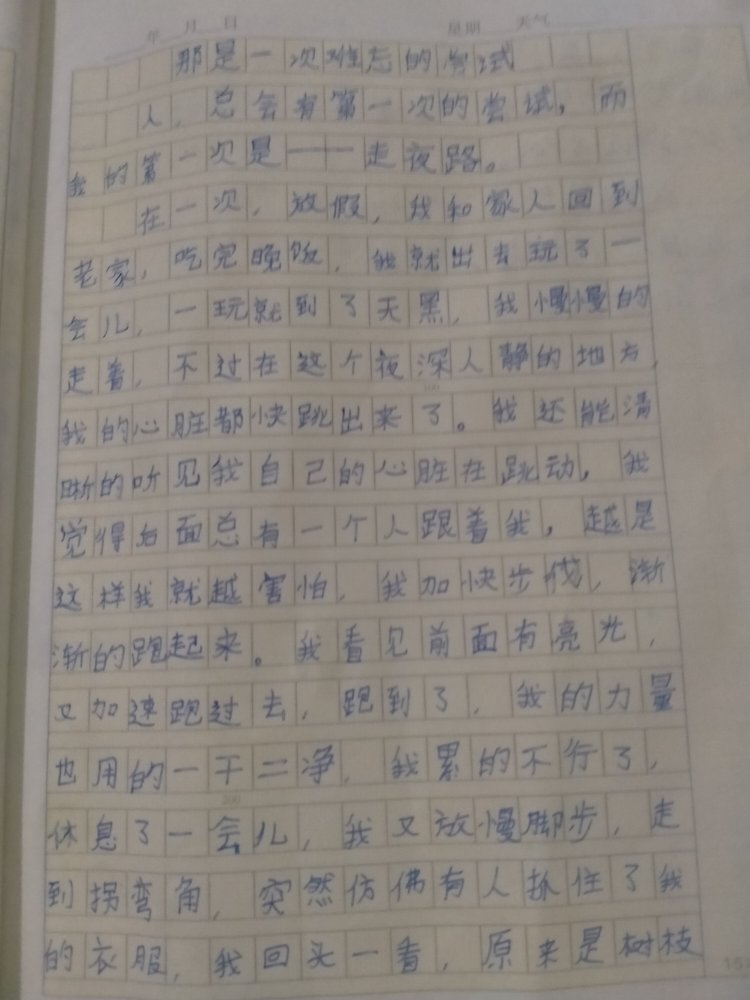 年 月 日 星期 天气
那是一次难忘的尝试
人，总会有第一次的尝试，而
我的第一次是——走夜路。
在一次，放假，我和家人回到
老家，吃完晚饭，我就出去玩了一
会儿，一玩就到了天黑，我慢慢的
走着，不过在这个夜深人静的地方，
我的心脏都快跳出来了。我还能清
晰的听见我自己的心脏在跳动，我
觉得后面总有一个人跟着我，越是
这样我就越害怕，我加快步伐，渐
渐的跑起来。我看见前面有亮光，
又加速跑过去，跑到了，我的力量
也用的一干二净，我累的不行了，
休息了一会儿，我又放慢脚步，走
到拐弯角，突然仿佛有人抓住了我
的衣服，我回头一看，原来是树枝